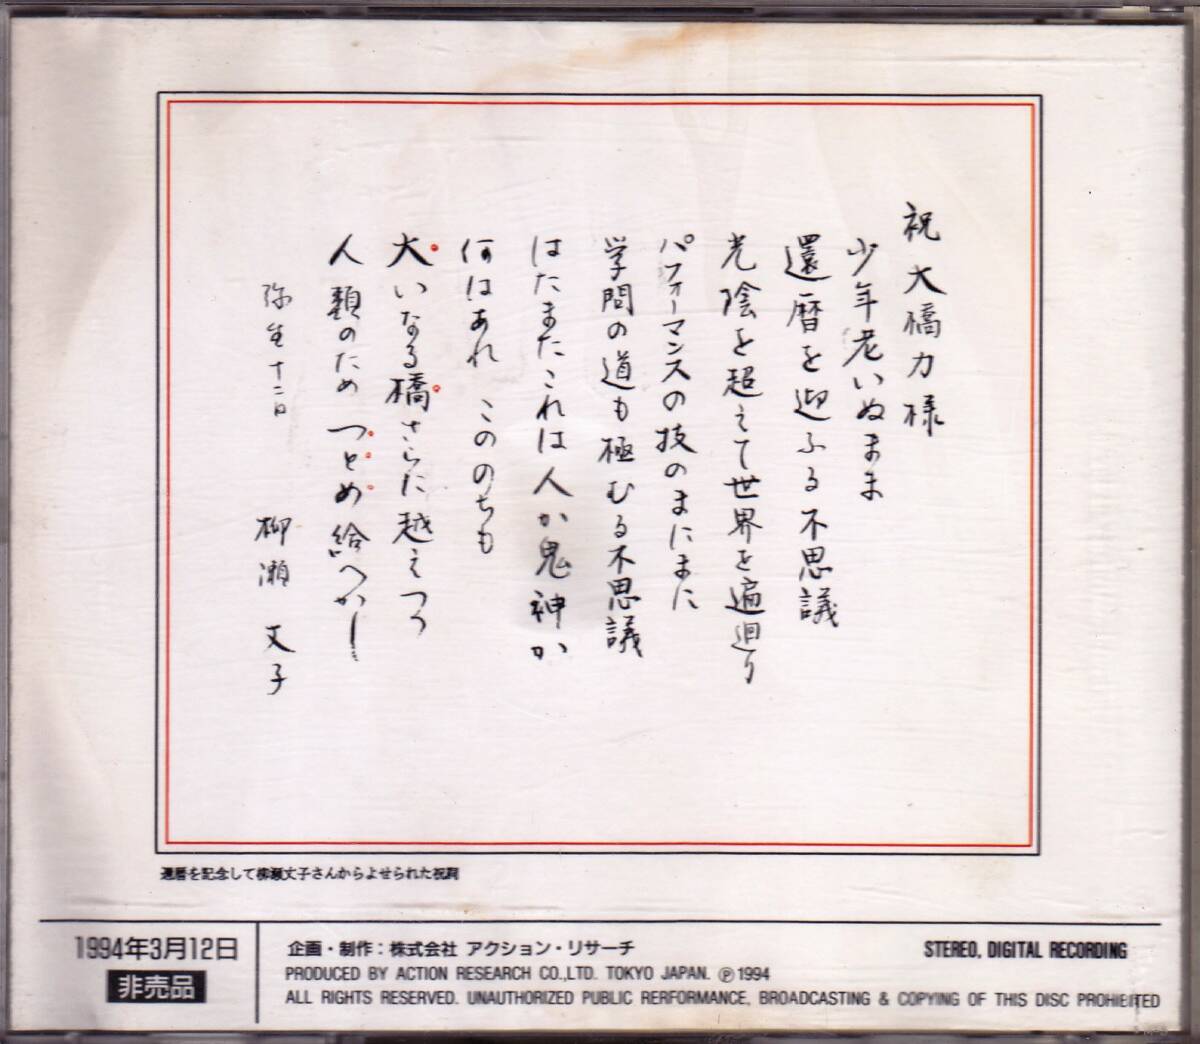 祝 大橋力様
少年老いぬまま
還暦を迎ふる不思議
光陰を超えて世界を遍廻り
パフォーマンスの技のまにまに
学問の道も極むる不思議
はたまたこれは人か鬼神か
何はあれ このゝちも
大いなる橋さらに越えつつ
人類のため つとめ給へかし
弥生十二日
柳瀬 丈子
還暦を記念して柳瀬丈子さんからよせられた祝詞
1994年3月12日
非売品
企画・制作：株式会社 アクション・リサーチ
STEREO, DIGITAL RECORDING
PRODUCED BY ACTION RESEARCH CO.,LTD. TOKYO JAPAN. ℗1994
ALL RIGHTS RESERVED. UNAUTHORIZED PUBLIC RERFORMANCE, BROADCASTING & COPYING OF THIS DISC PROHIBITED